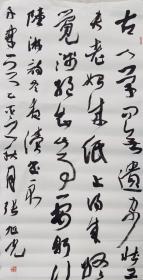 古人学问无遗力少壮工
夫老始成纸上得来终
觉浅绝知此事要躬行
陆游诗冬夜读书示
子聿 秋月张旭光